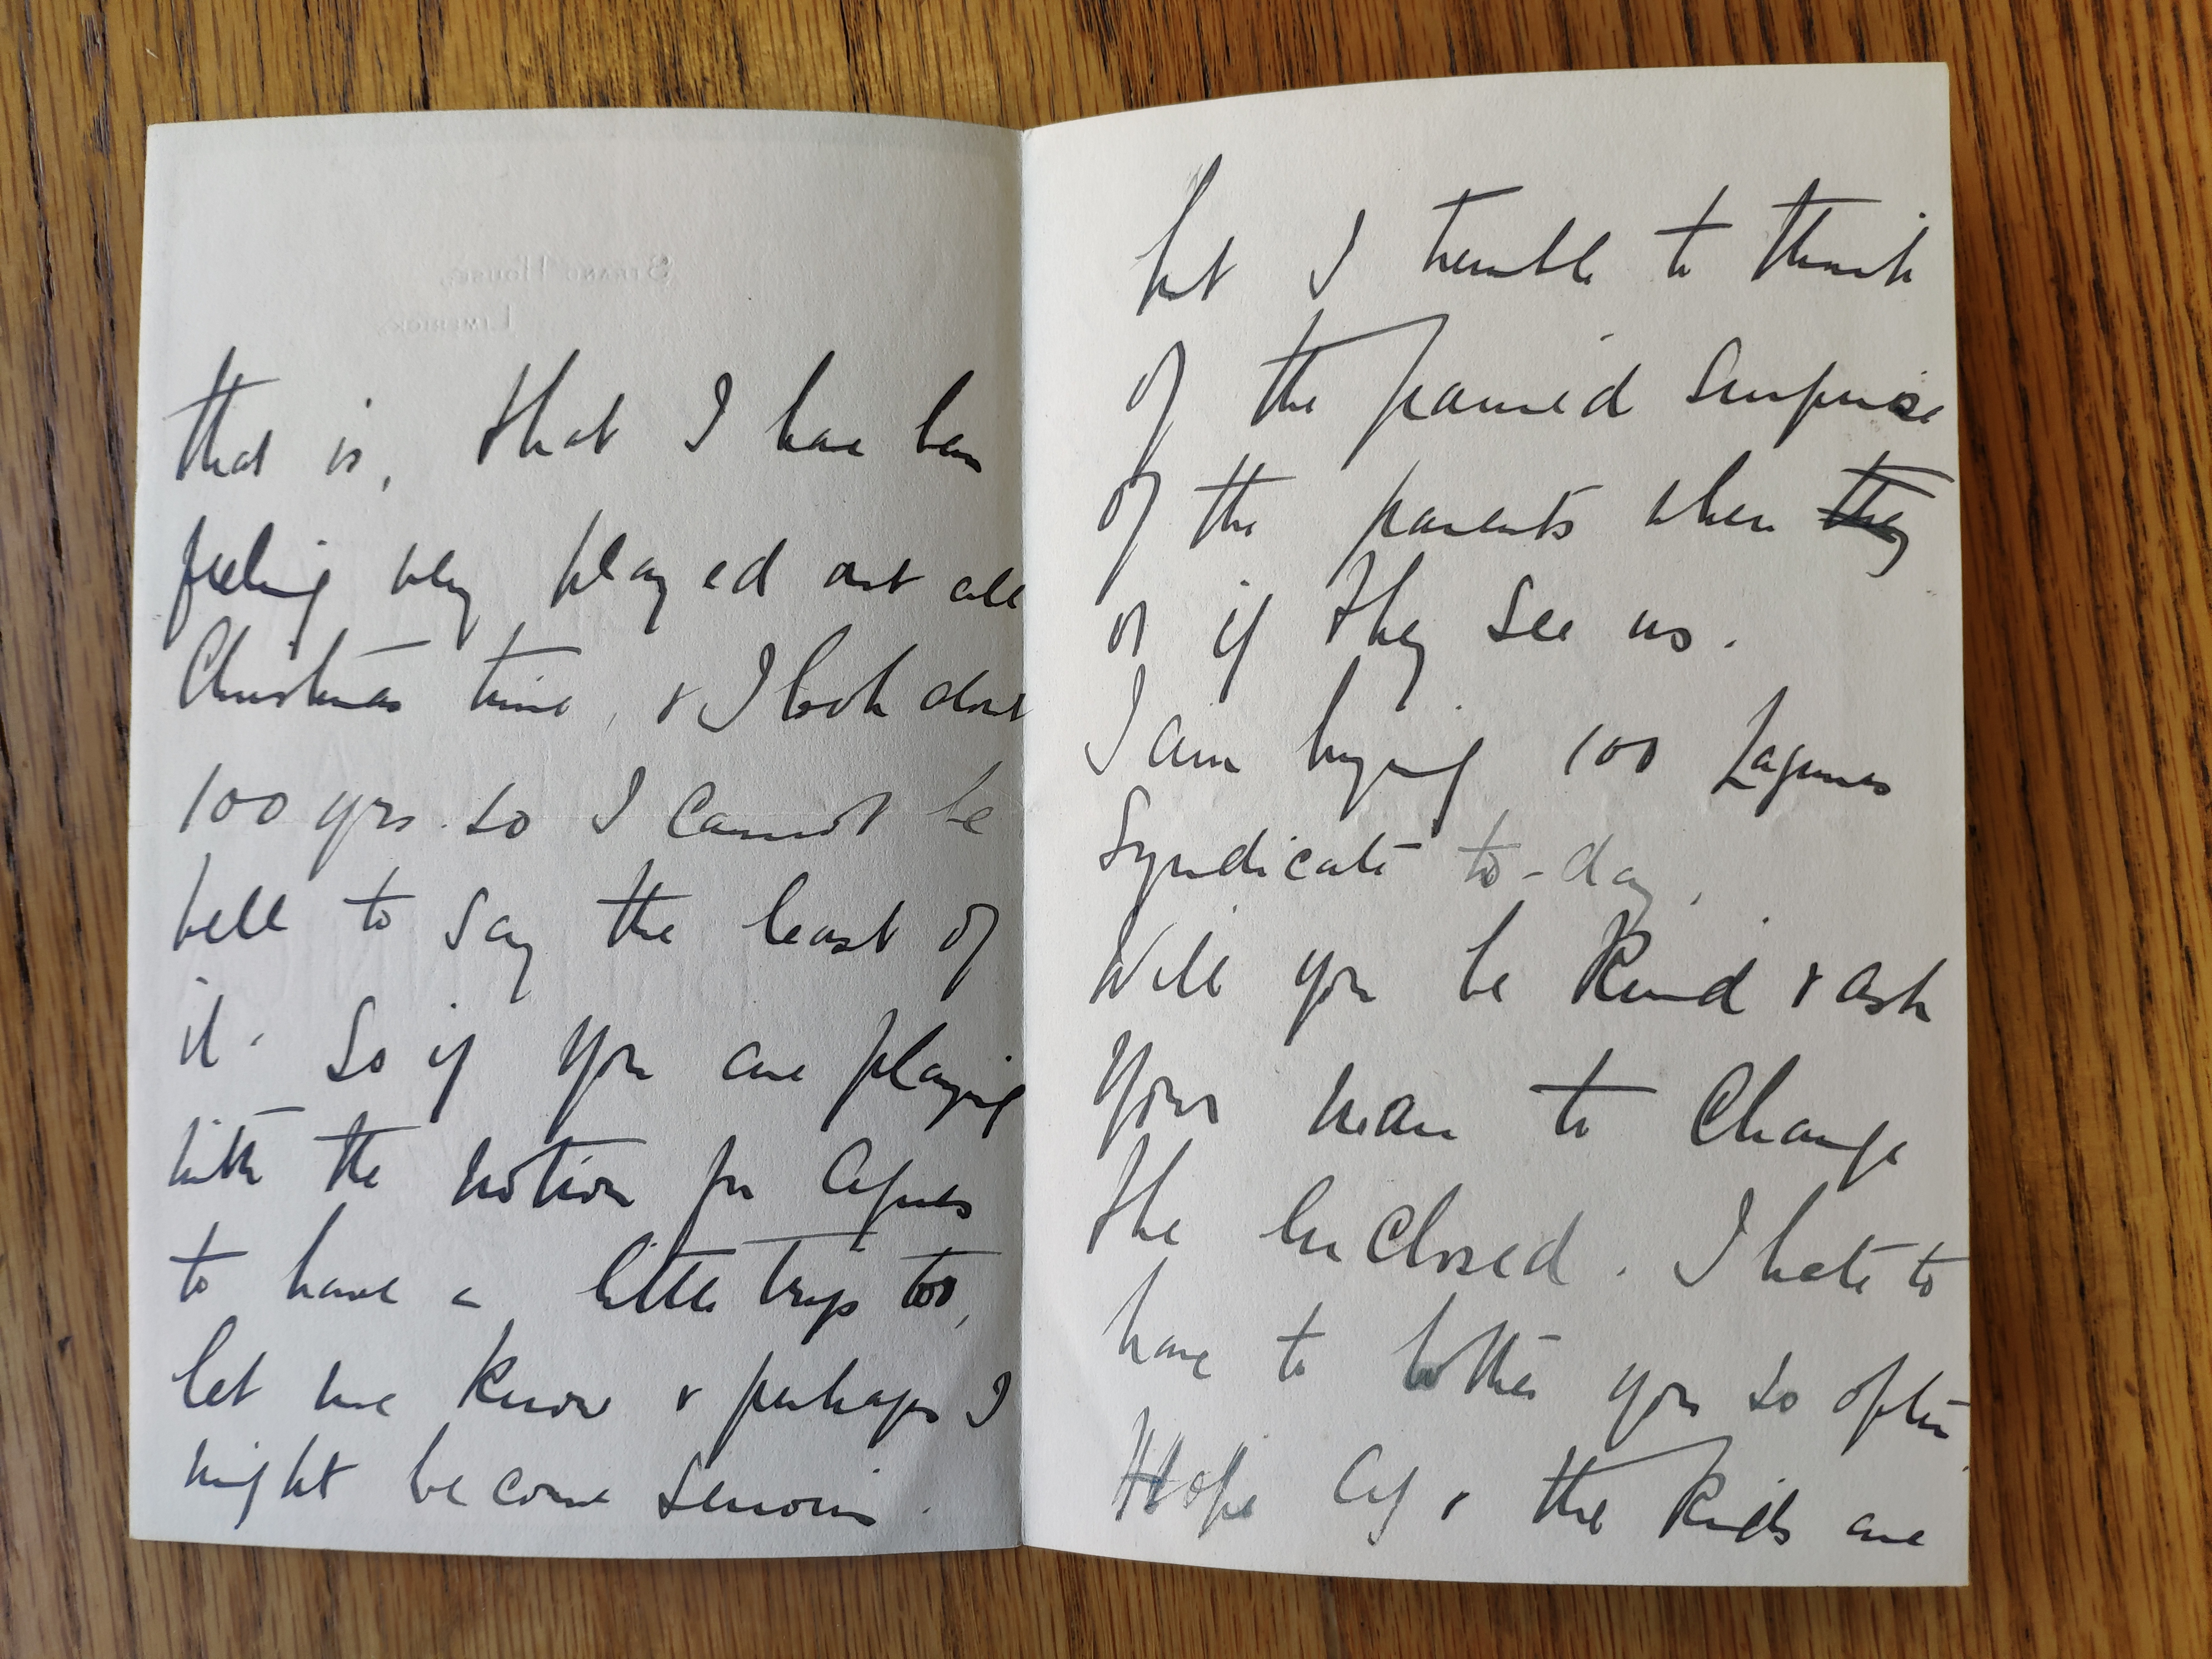 Strand House,
Limerick.
that is, that I have been
feeling very played out all
Christmas time, & I look about
100 yrs. so I cannot be
well to say the least of
it. So if you are playing
with the notion for Agnes
to have a little trip too,
let me know & perhaps I
might become serious.
but I tremble to think
of the pained surprise
of the parents when they
or if they see us.
I am buying 100
Syndicate to-day.
Will you be kind & ask
your man to change
the enclosed. I hate to
have to bother you so often
Hope & the kids are